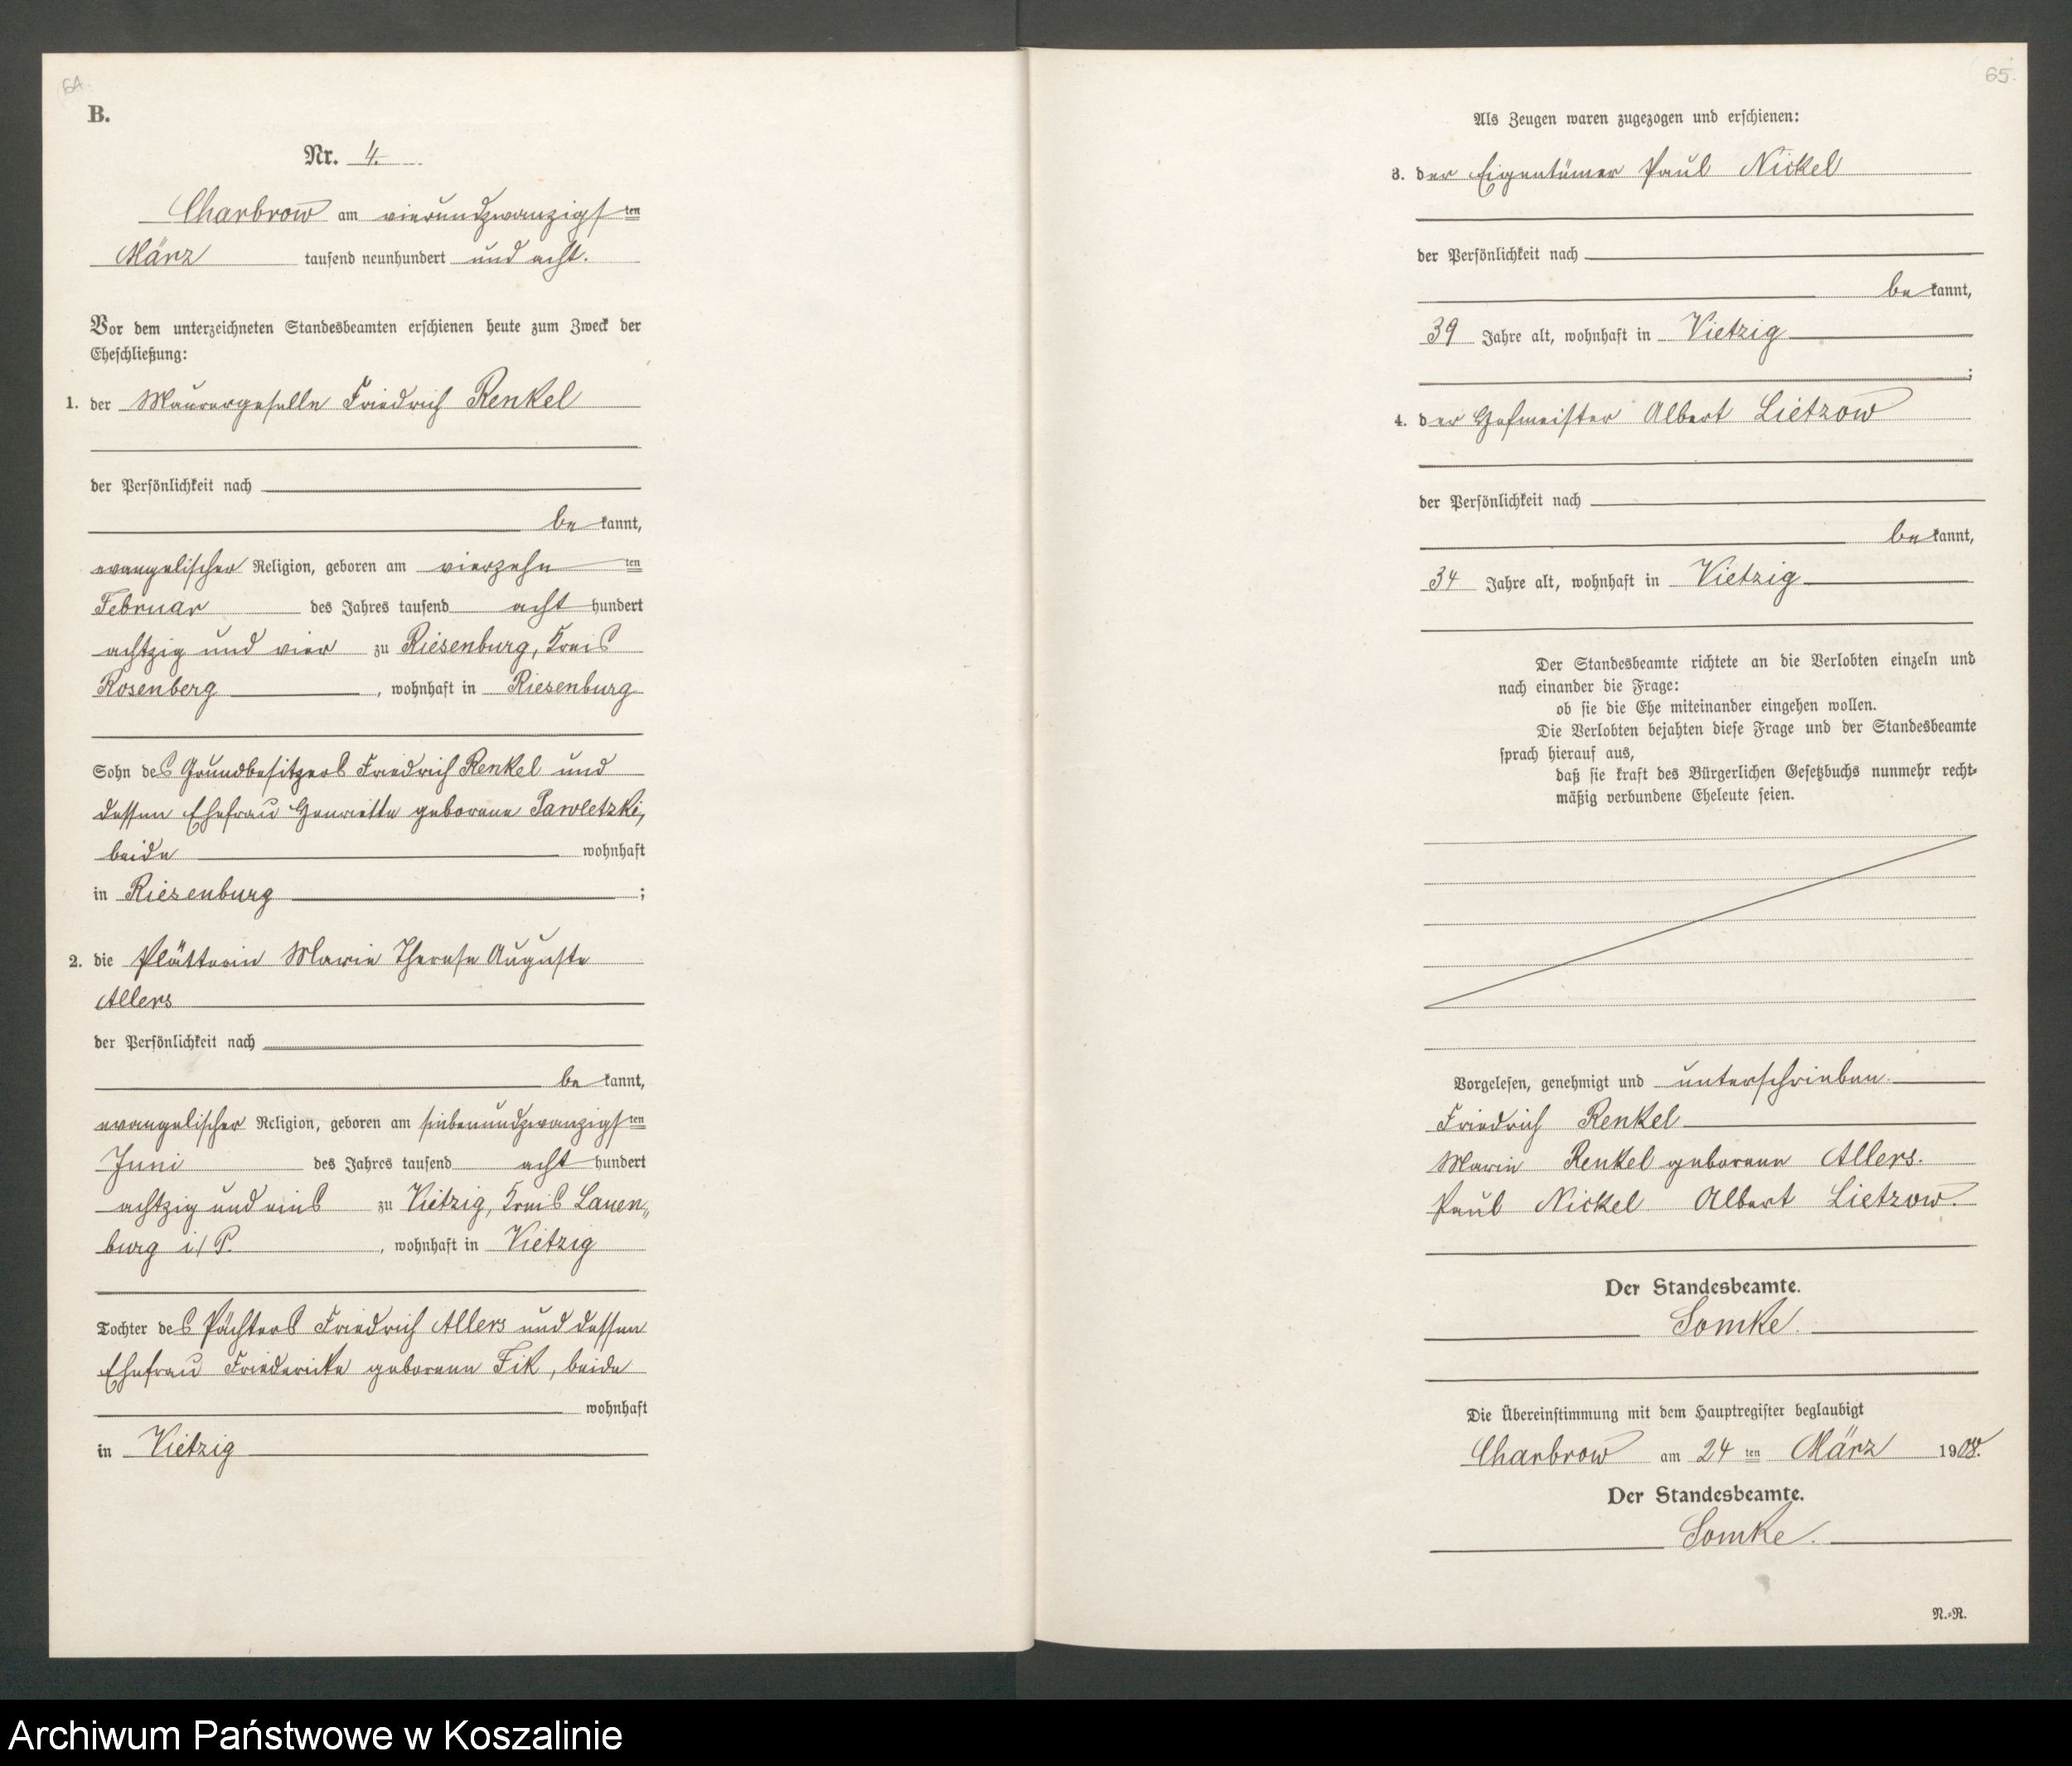 64.
B.
Nr. 4.
Charbrow am vierundzwanzigsten
März tausend neunhundert und acht.
Vor dem unterzeichneten Standesbeamten erschienen heute zum Zweck der
Eheschließung:
1. der Maurergeselle Friedrich Renkel
der Persönlichkeit nach
be kannt,
evangelischer Religion, geboren am vierzehn ten
Februar des Jahres tausend acht hundert
achtzig und vier zu Riesenburg, Kreis
Rosenberg, wohnhaft in Riesenburg
Sohn des Grundbesitzers Friedrich Renkel und
dessen Ehefrau Henriette geborene Pawletzki,
beide wohnhaft
in Riesenburg ;
2. die Plätterin Marie Therese Auguste
Allers
der Persönlichkeit nach
be kannt,
evangelischer Religion, geboren am siebenundzwanzigsten
Juni des Jahres tausend acht hundert
achtzig und eins zu Vietzig, Kreis Lauen„
burg i/P., wohnhaft in Vietzig
Tochter des Pächters Friedrich Allers und dessen
Ehefrau Friedericke geborene Fik, beide
wohnhaft
in Vietzig
65.
Als Zeugen waren zugezogen und erschienen:
3. der Eigentümer Paul Nickel
der Persönlichkeit nach
be kannt,
39 Jahre alt, wohnhaft in Vietzig
;
4. der Hofmeister Albert Lietzow
der Persönlichkeit nach
be kannt,
34 Jahre alt, wohnhaft in Vietzig
Der Standesbeamte richtete an die Verlobten einzeln und
nach einander die Frage:
ob sie die Ehe miteinander eingehen wollen.
Die Verlobten bejahten diese Frage und der Standesbeamte
sprach hierauf aus,
daß sie kraft des Bürgerlichen Gesetzbuchs nunmehr recht-
mäßig verbundene Eheleute seien.
Vorgelesen, genehmigt und unterschrieben.
Friedrich Renkel
Marie Renkel geborene Allers.
Paul Nickel Albert Lietzow.
Der Standesbeamte.
Somke.
Die Übereinstimmung mit dem Hauptregister beglaubigt
Charbrow am 24 ten März 1908.
Der Standesbeamte.
Somke.
N.-R.
Archiwum Państwowe w Koszalinie